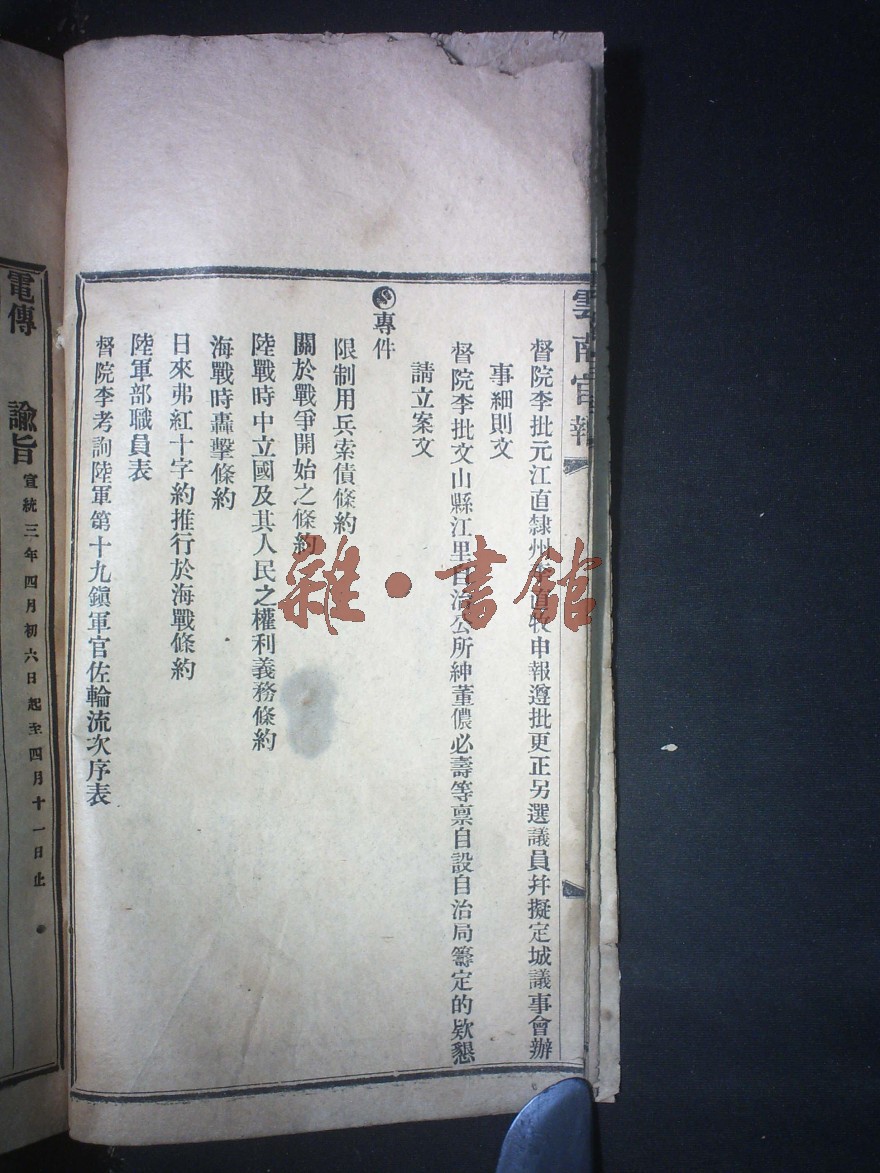 雲南官報
督院李批元江直隸州李直牧申報遵批更正另選議員幷擬定城議事會辦
事細則文
督院李批文山縣江里自治公所紳董儂必壽等禀自設自治局籌定的欵懇
請立案文
專件
限制用兵索債條約
關於戰爭開始之條約
陸戰時中立國及其人民之權利義務條約
海戰時轟擊條約
日來弗紅十字約推行於海戰條約
陸軍部職員表
督院李考詢陸軍第十九鎮軍官佐輪流次序表
電傳 諭旨 宣統三年四月初六日起至四月十一日止
雜·書館